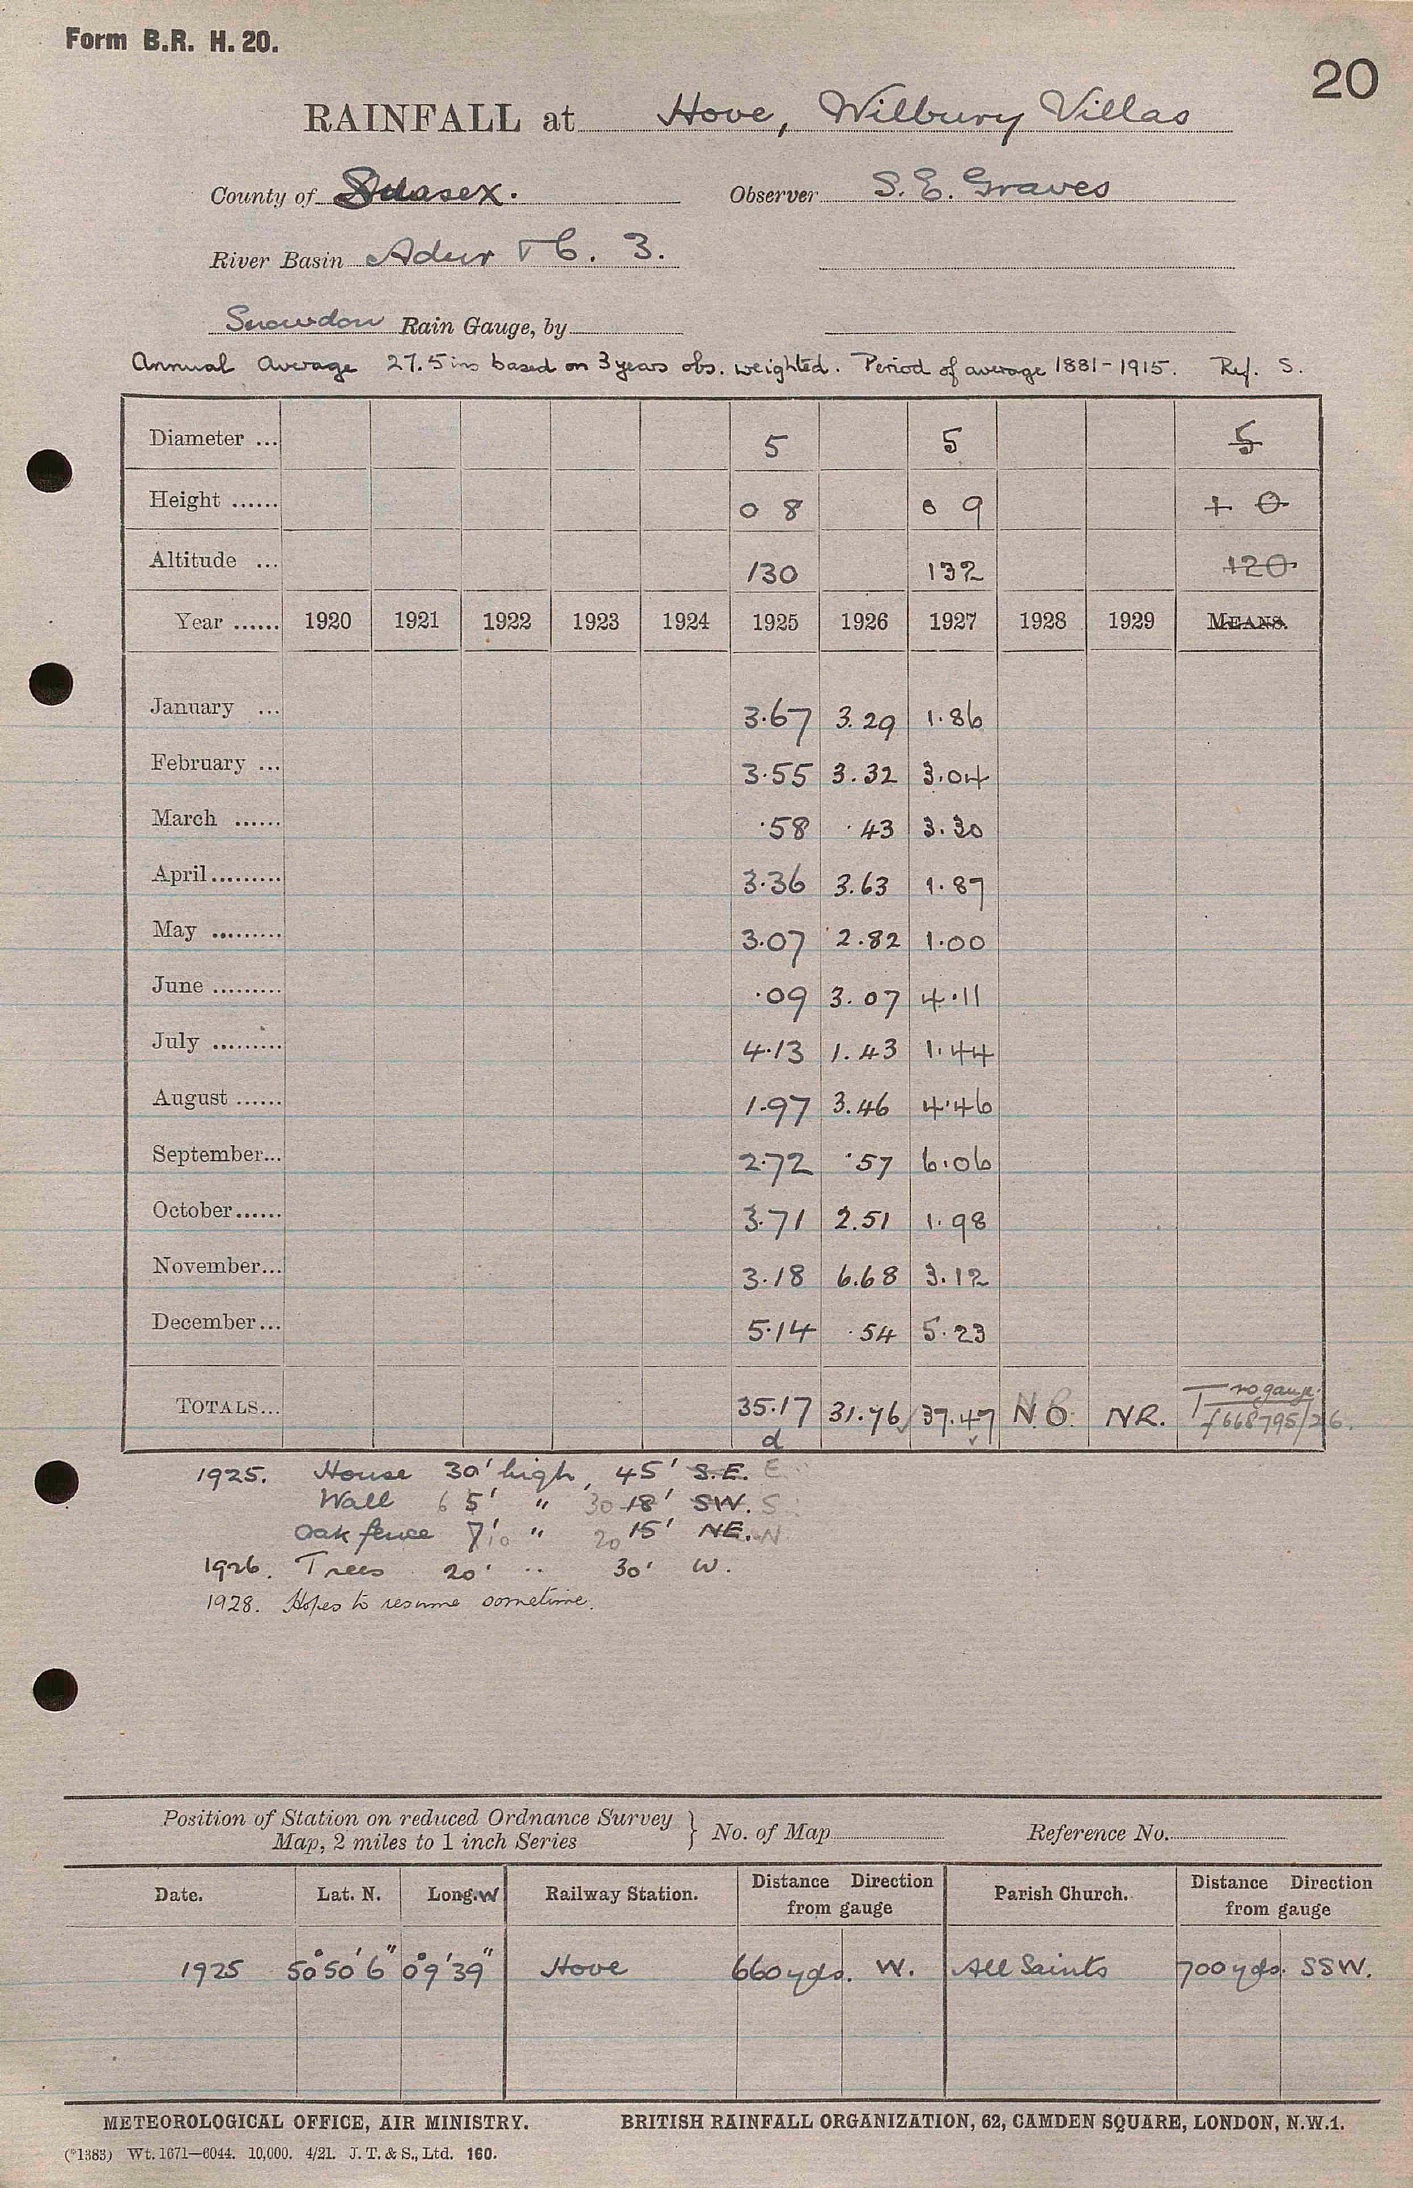 Form B.R. H. 20.
20
RAINFALL at Hove, Wilbury Villas
County of Sussex. Observer S. E. Graves
River Basin Adur &c. 3.
Snowdon Rain Gauge, by
Annual Average 27.5 ins based on 3 years obs. weighted. Period of average 1881-1915. Ref. S.
Diameter ... 5 5 5
Height ...... 0 8 0 9 1 0
Altitude ... 130 132 120
Year ...... 1920 1921 1922 1923 1924 1925 1926 1927 1928 1929 MEANS.
January ... 3.67 3.29 1.86
February ... 3.55 3.32 3.04
March ...... .58 .43 3.30
April......... 3.36 3.63 1.87
May ......... 3.07 2.82 1.00
June ......... .09 3.07 4.11
July ......... 4.13 1.43 1.44
August ...... 1.97 3.46 4.46
September... 2.72 .57 6.06
October...... 3.71 2.51 1.98
November... 3.18 6.68 3.12
December... 5.14 .54 5.23
no gauge.
TOTALS... 35.17 31.76 37.47 N.R. NR. f668795/26.
d
1925. House 30' high, 45' S.E. E
Wall 6 5' " 30 18' SW. S
Oak fence 7' 10 " 20 15' NE. N
1926. Trees 20' .. 30' W.
1928. Hopes to resume sometime.
Position of Station on reduced Ordnance Survey
Map, 2 miles to 1 inch Series } No. of Map Reference No.
Date. Lat. N. Long. W Railway Station. Distance Direction from gauge Parish Church. Distance Direction from gauge
1925 50° 50' 6" 0° 9' 39" Hove 660 yds. W. All Saints 700 yds. SSW.
METEOROLOGICAL OFFICE, AIR MINISTRY. BRITISH RAINFALL ORGANIZATION, 62, CAMDEN SQUARE, LONDON, N.W.1.
(*1383) Wt. 1671—6044. 10,000. 4/21. J. T. & S., Ltd. 160.